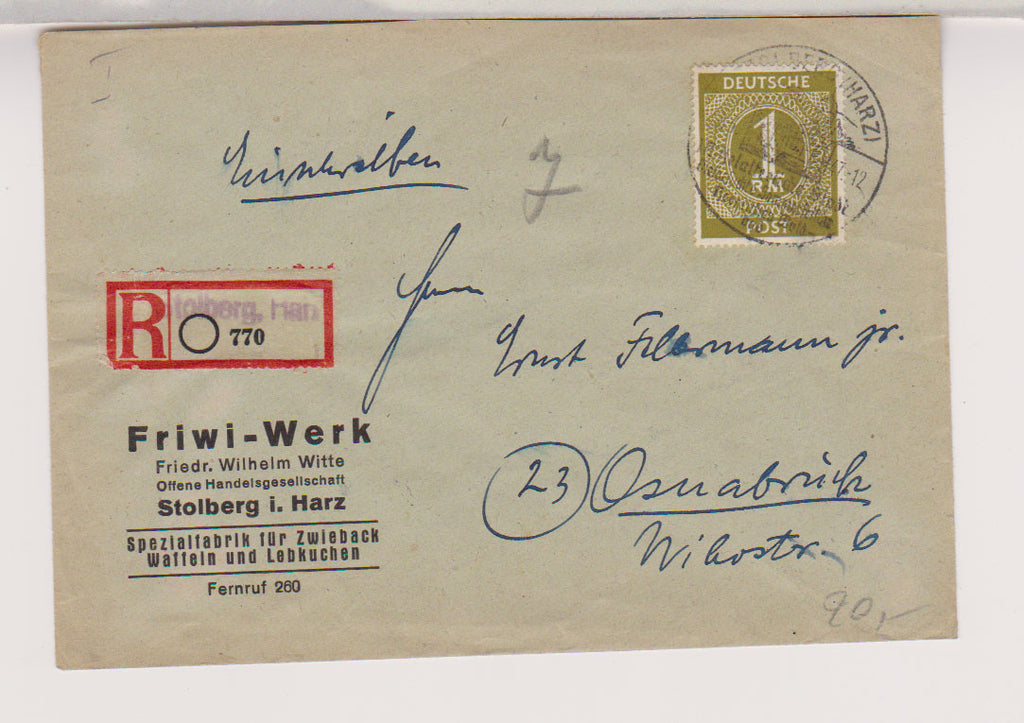 I
Einschreiben
DEUTSCHE
1
RM
POST
(HARZ)
-12
R Stolberg, Harz
770
Herrn
Ernst Fllermann jr.
(23) Osnabrück
6
Friwi-Werk
Friedr. Wilhelm Witte
Offene Handelsgesellschaft
Stolberg i. Harz
Spezialfabrik für Zwieback
Waffeln und Lebkuchen
Fernruf 260
90,-